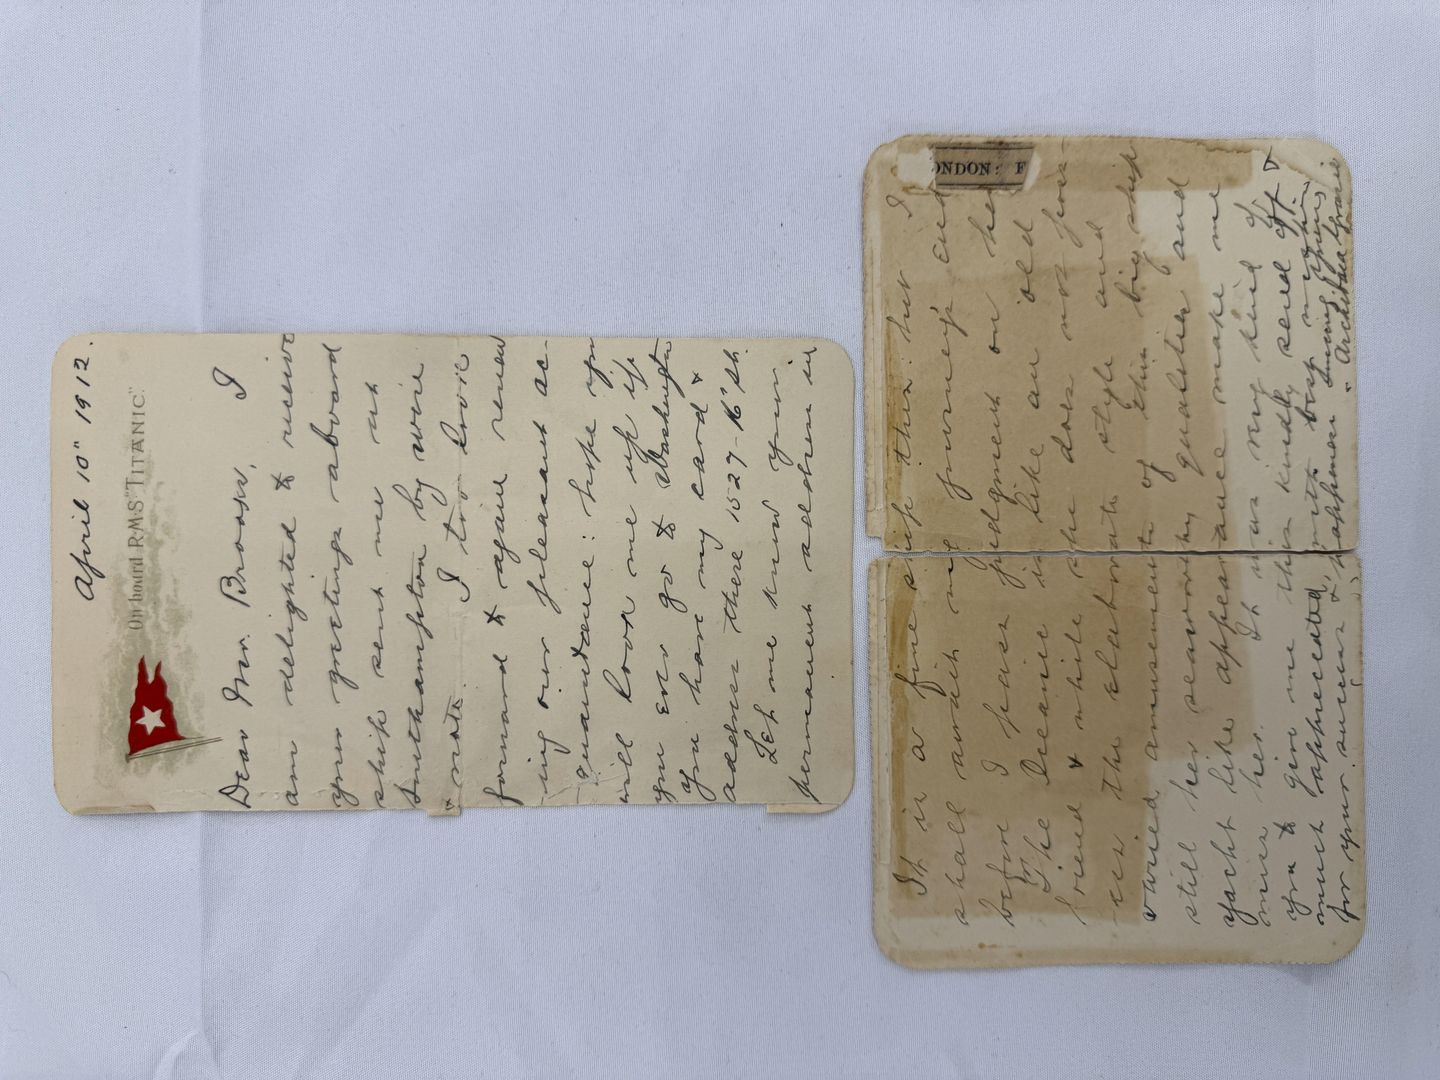 April 10" 1912.
On board R.M.S. "TITANIC."
Dear Mr.
I
am delighted to receive
your greetings aboard
ship sent me at
Southampton by wire
& note. I too look
forward to again renew
-ing our pleasant ac-
quaintance: hope you
will look me up if
you ever go to Washington
You have my card &
address there 1527-16' St.
Let me know your
permanent address in
ONDON: F
It is a fine ship this: but I
shall await my journey's end
before I pass judgment on her
The Oceanic is like an old
friend & while she does not poss-
-ess the elaborate style and
varied amusements of this big ship
still her seaworthy qualities and
yacht like appearance make me
miss her. It was very kind of
you to give me this kindly send off &
much appreciated, with best wishes
for your success & happiness Sincerely yours,
Archibald Gracie